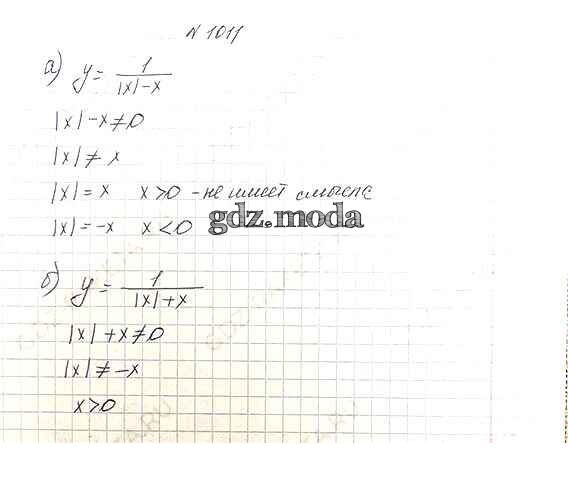 N 1011
а) y = 1/(|x|-x)
|x|-x≠0
|x|≠x
|x|=x x>0 - не имеет смысла
|x|=-x x<0
gdz.moda
б) y = 1/(|x|+x)
|x|+x≠0
|x|≠-x
x>0